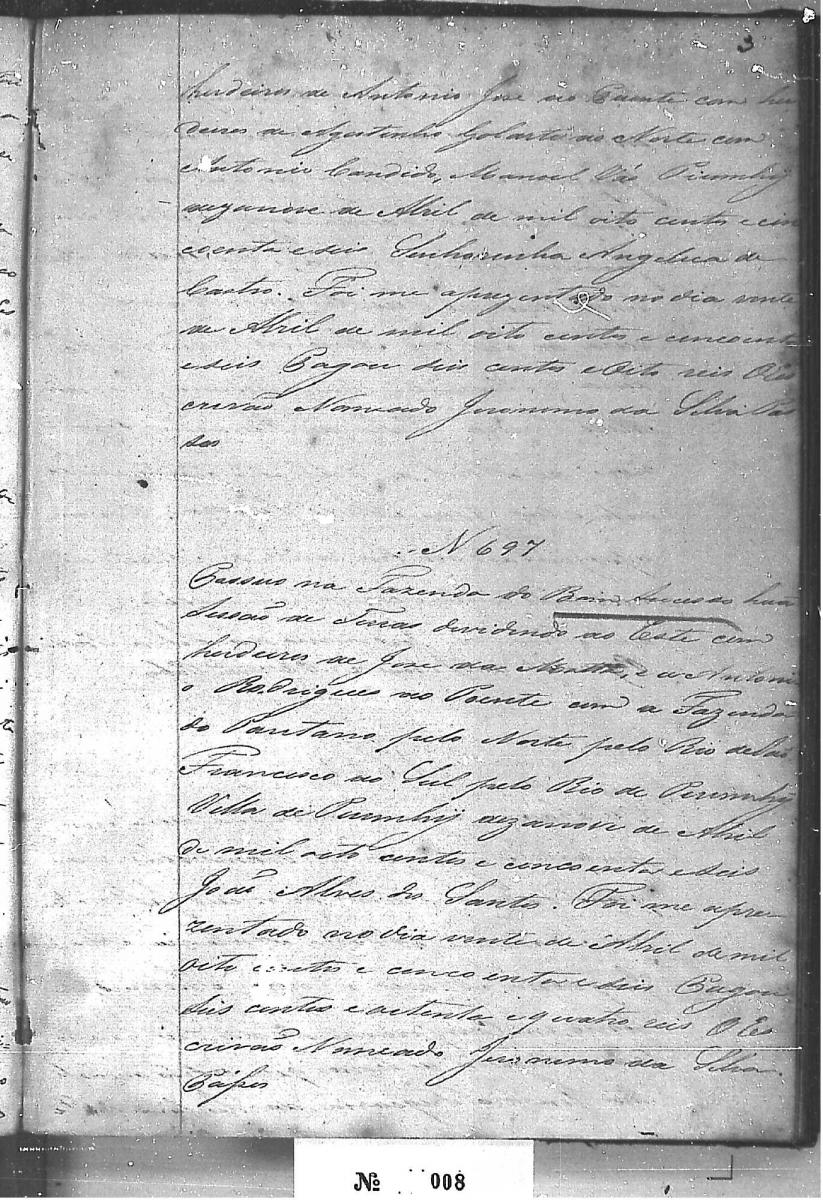 3
herdeiros de Antonio José ao Poente com her
deiros de Agostinho Golarte ao Norte com
Antonio Candido, Manoel Vás Piumhij
dezanove de Abril de mil oito centos e cin
coenta e seis Senhorinha Angelica de
Castro. Foi me aprezentado no dia vinte
de Abril de mil oito centos e cincoenta
e seis Pagou seis centos e oito reis O Es
crivão Nomeado Jeronimo da Silva Pas
sos
N 697
Possuo na Fazenda do Bom Sucesso huã
de Terras dividindo ao Este com
herdeiros de José da Motta, e a Antoni
o Rodrigues ao Poente com a Fazenda
do Pantano pelo Norte pelo Rio de São
Francisco ao Sul pelo Rio de Piumhij
Villa de Piumhij dezanove de Abril
de mil oito centos e cincoenta e seis
João Alves dos Santos. Foi me apre
zentado no dia vinte de Abril de mil
oito centos e cincoenta e seis Pagou
seis centos e oitenta e quatro reis O Es
crivão Nomeado Jeronimo da Silva
Pássos
Nº 008